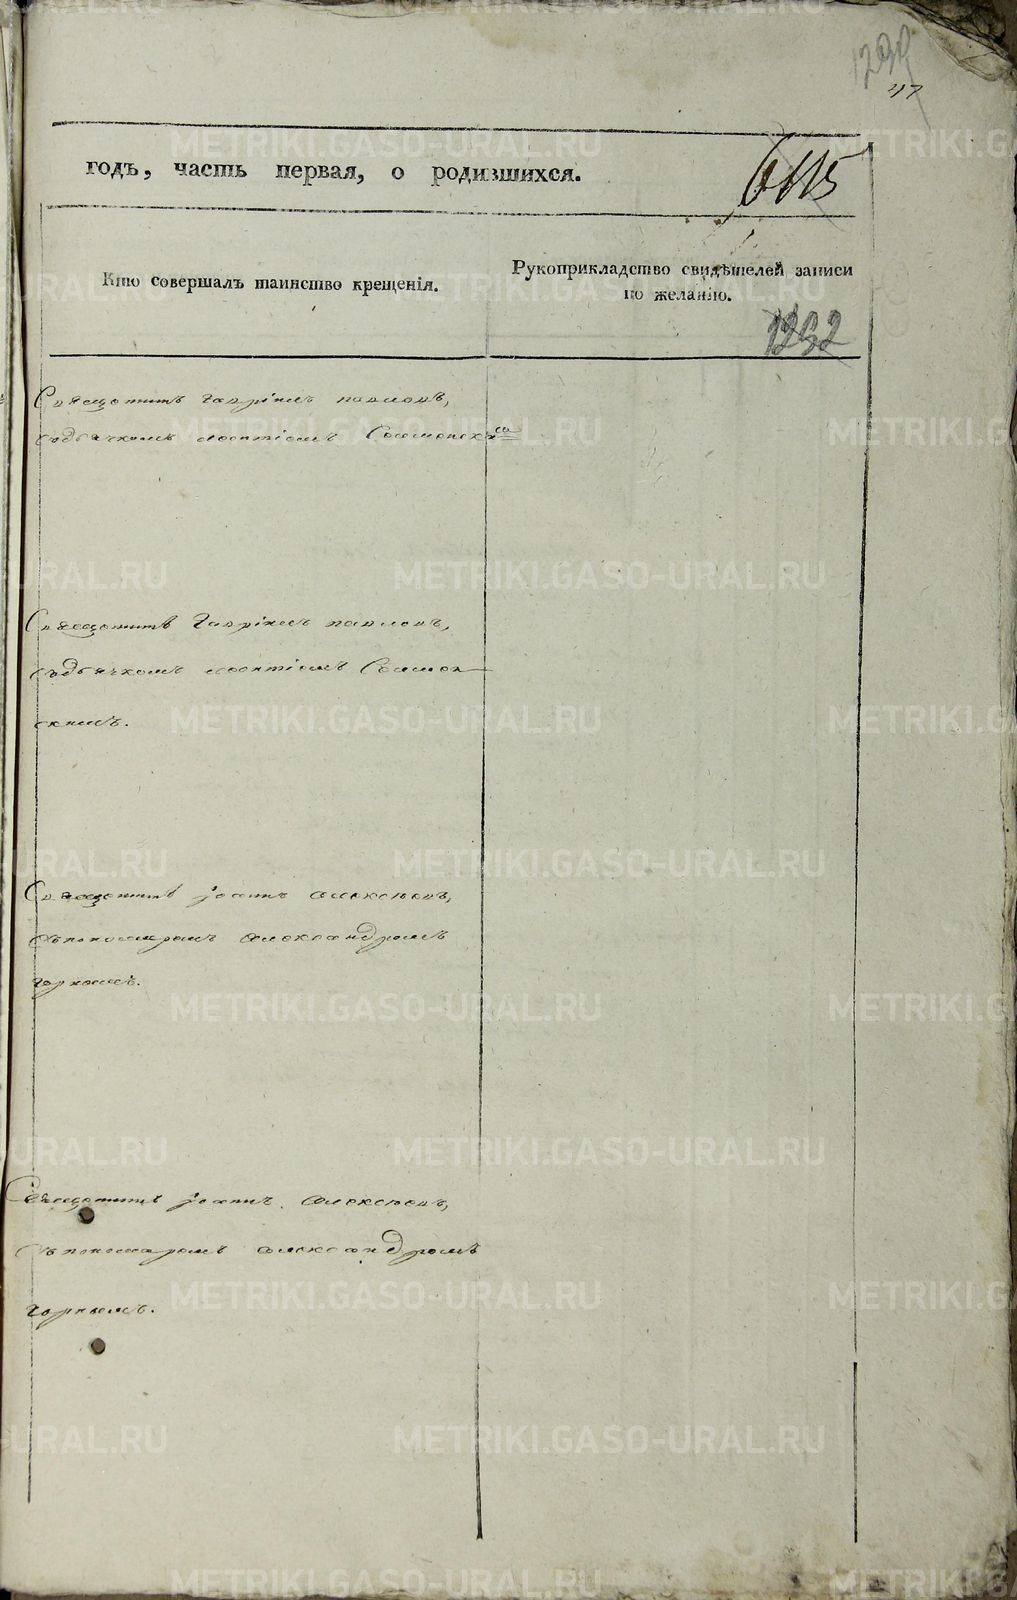 47
годъ, часть первая, о родившихся.
6115
Кто совершалъ таинство крещенія.
Рукоприкладство свидѣтелей записи
по желанію.
1232
Священникъ Гавріилъ Павловъ,
съ дьячкомъ Леонтіемъ
Священникъ Гавріилъ Павловъ,
съ дьячкомъ Леонтіемъ
скимъ.
Священникъ Іоаннъ Алексѣевъ,
съ пономаремъ Александромъ
Горнымъ.
Священникъ Іоаннъ Алексѣевъ,
съ пономаремъ Александромъ
Горнымъ.
METRIKI.GASO-URAL.RU